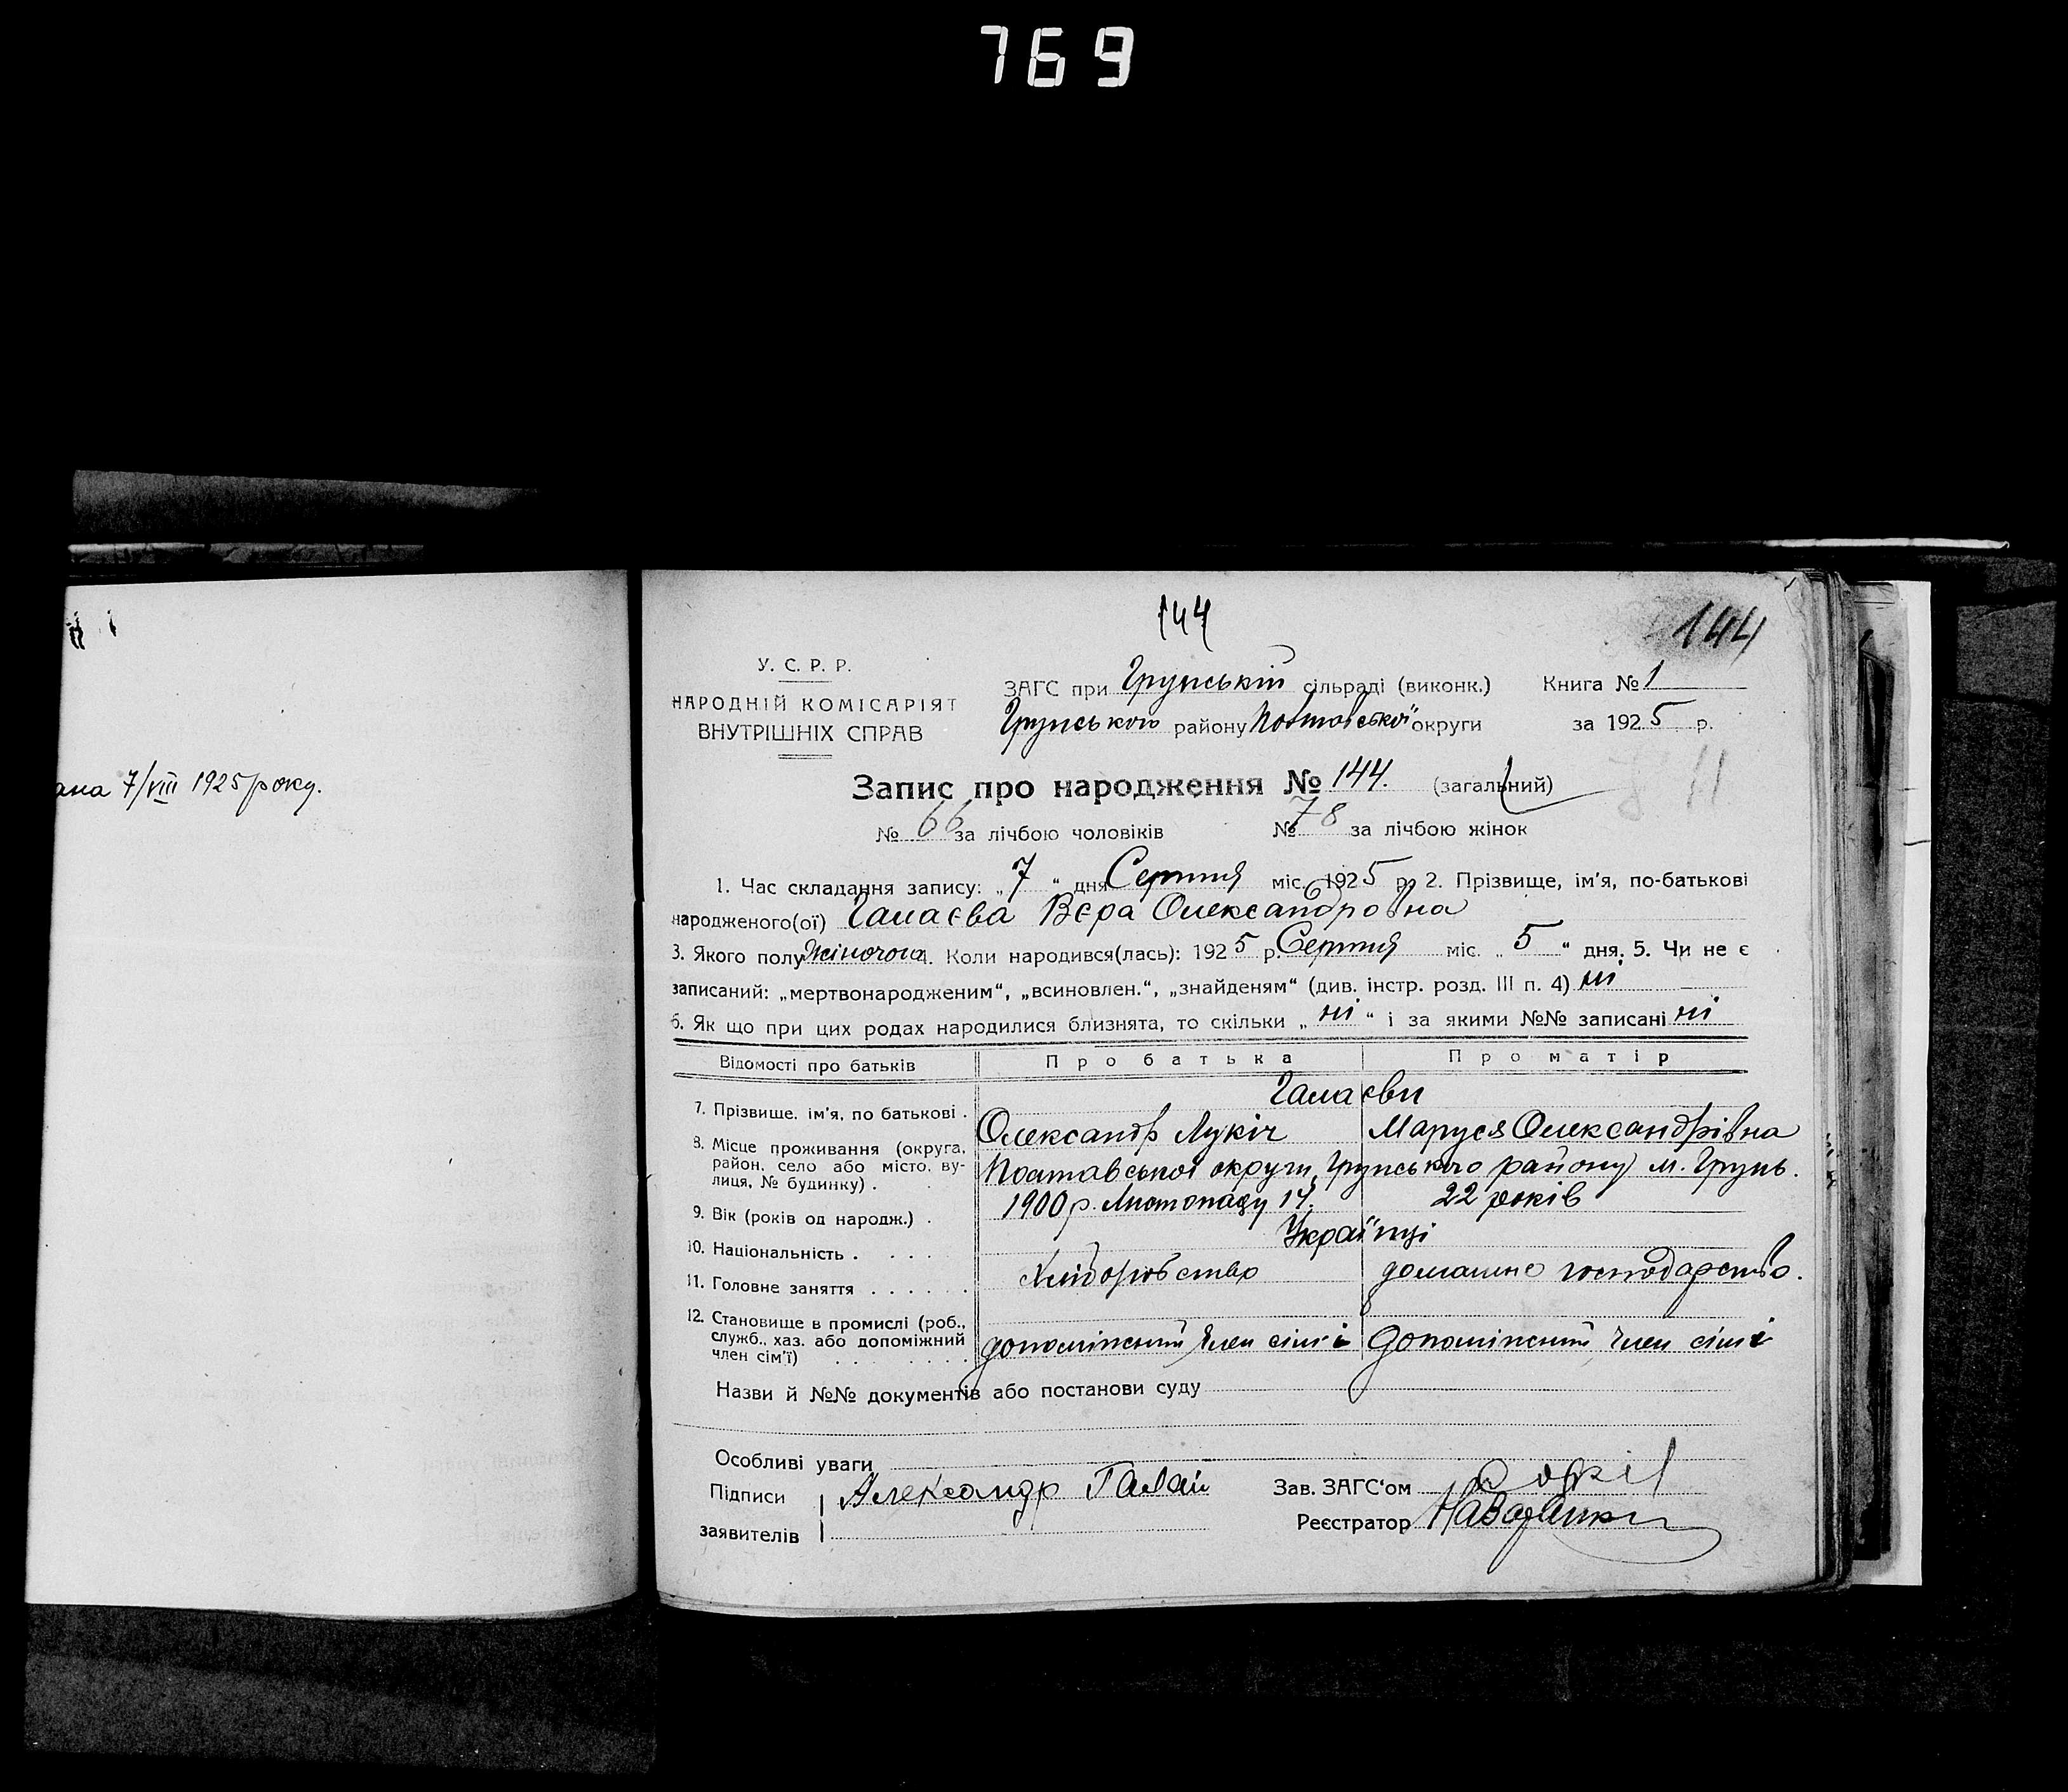 769
ана 7/VIII 1925 року.
144
144
У. С. Р. Р.
НАРОДНІЙ КОМІСАРІЯТ
ВНУТРІШНІХ СПРАВ
ЗАГС при Грунській сільраді (виконк.) Книга № 1
Грунського району Полтавської округи за 1925 р.
Запис про народження № 144. (загальний)
№ 66 за лічбою чоловіків № 78 за лічбою жінок
1. Час складання запису: „7“ дня Серпня міс. 1925 р. 2. Прізвище, ім'я, по-батькові
народженого(ої) Галаєва Вєра Олександровна
3. Якого полу Жіночого 4. Коли народився(лась): 1925 р. Серпня міс. „5“ дня. 5. Чи не є
записаний: „мертвонародженим“, „всиновлен.“, „знайденям“ (див. інстр. розд. III п. 4) ні
6. Як що при цих родах народилися близнята, то скільки „ні“ і за якими №№ записані ні
Відомості про батьків Про батька Про матір
Галаєви
7. Прізвище, ім'я, по батькові . Олександр Лукіч Маруся Олександрівна
8. Місце проживання (округа,
район, село або місто, ву-
лиця, № будинку) . Полтавської округи, Грунського району м. Грунь.
9. Вік (років од народж.) . 1900 р. Листопаду 14. 22 років
10. Національність . . . . Українці
11. Головне заняття . . . . . . Хліборобство домашнє господарство.
12. Становище в промислі (роб.,
служб., хаз. або допоміжний
член сім'ї) . . . . . . . . допоміжний член сімї Допоміжний член сімї
Назви й №№ документів або постанови суду
Особливі уваги
Підписи Александр Галай Зав. ЗАГС'ом
заявителів Реєстратор